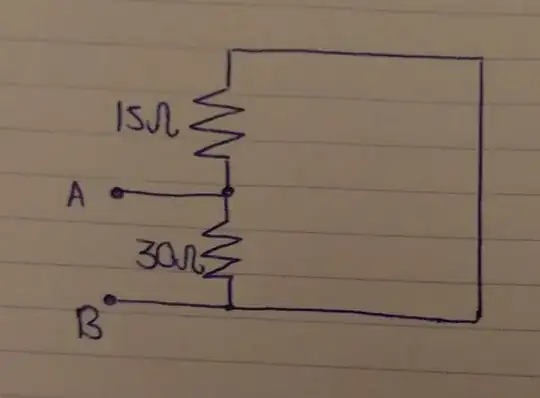 15Ω
A
30Ω
B